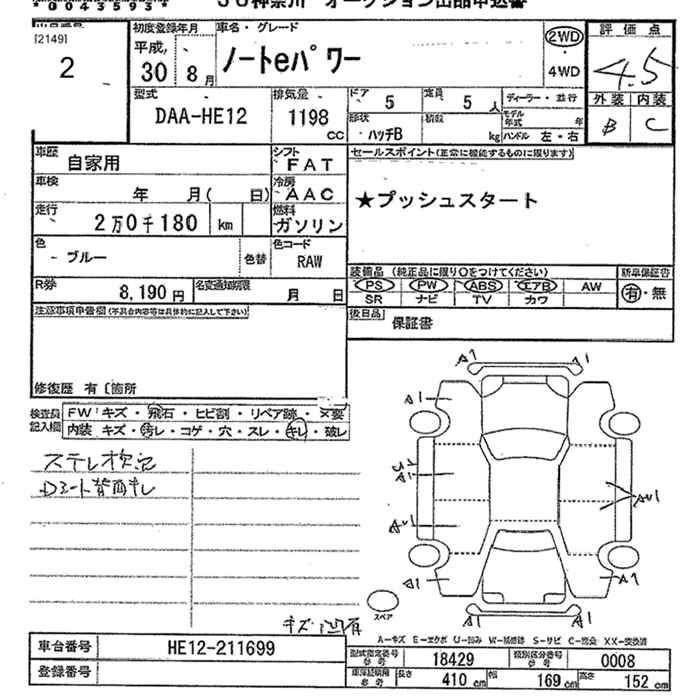 00435934
JU神奈川 オークション出品申込書
[2149]
2
初度登録年月
平成,
30年 8月
車名・グレード
ノートeパワー
2WD
・
4WD
評価点
4.5
外装 内装
B C
型式
DAA-HE12
排気量
1198 CC
ドア 5
定員 5 人
ディーラー・並行
形状 ハッチB
積載 kg
モデル年式 年
ハンドル 左・右
車歴 自家用
シフト FAT
セールスポイント(正常に機能するものに限ります)
★プッシュスタート
車検 年 月( 日)
冷房 AAC
走行 2万0千180 km
燃料 ガソリン
色 ブルー 色替
色コード RAW
R券 8,190円
名変通知期限 月 日
装備品 (純正品に限り○をつけてください)
PS PW ABS エアB AW
SR ナビ TV カワ
新車保証書
有・無
注意事項申告欄(不具合内容等は具体的に記入して下さい)
後日品 保証書
修復歴 有 〔箇所
検査員記入欄
FW キズ・飛石・ヒビ割・リペア跡・×要
内装 キズ・汚レ・コゲ・穴・スレ・キレ・破レ
ステレオ欠品
Dシート背面キレ
A1 A1
A1
A1
AU1
AU1
A1 A1
スペア
キズ 凹有
A-キズ E-エクボ U-凹み W-補修跡 S-サビ C-腐食 XX-交換済
車台番号 HE12-211699
登録番号
型式指定番号 参考 18429
類別区分番号 参考 0008
車両諸元 参考 長さ 410 cm 幅 169 cm 高さ 152 cm